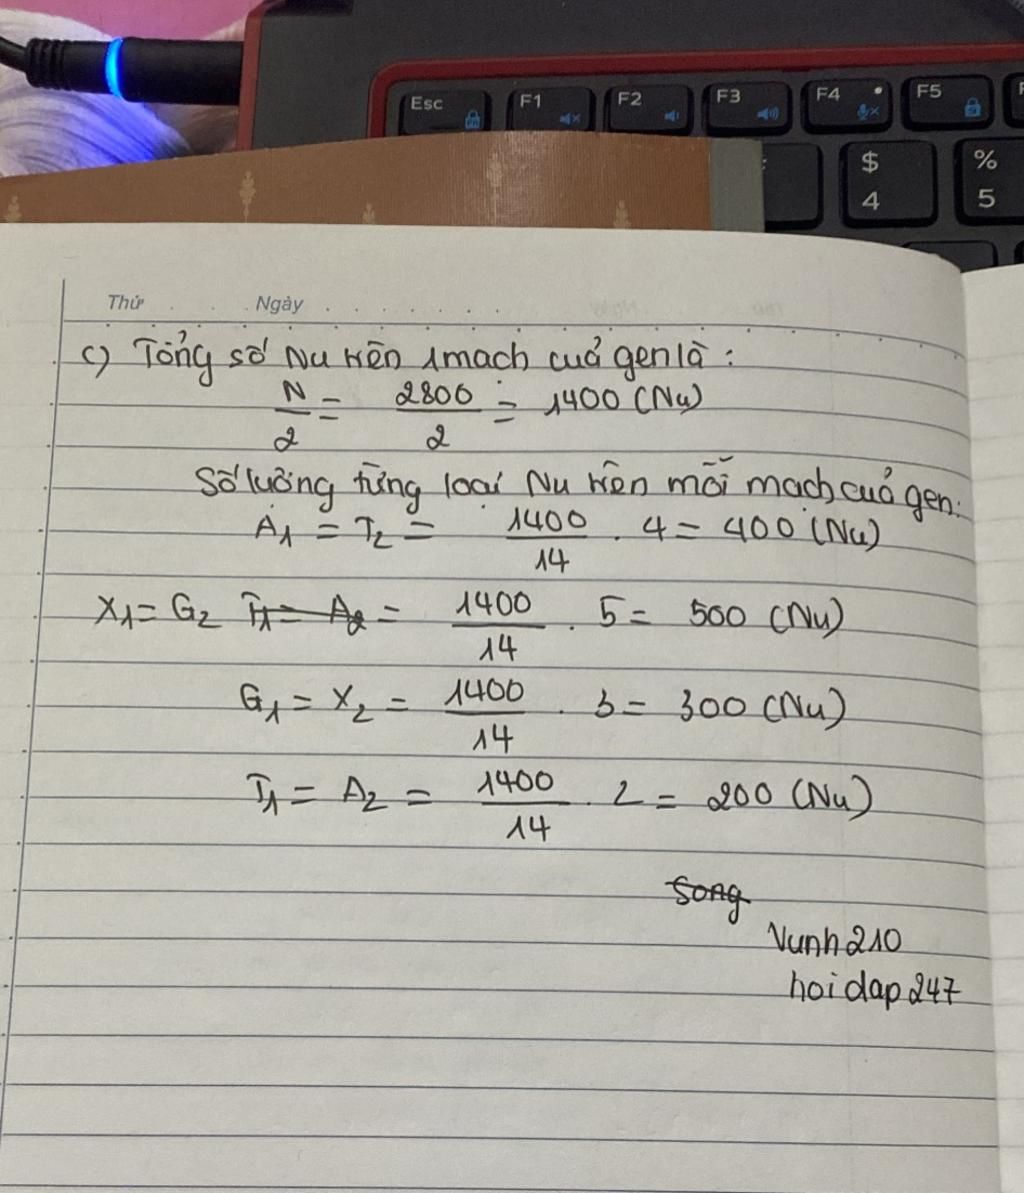 Esc F1 F2 F3 F4 F5
$ %
4 5
Thứ . . . Ngày . . . . . . .
c) Tổng số Nu trên 1 mạch của gen là :
N/2 = 2800/2 = 1400 (Nu)
Số lượng từng loại Nu trên mỗi mạch của gen:
A1 = T2 = 1400/14 . 4 = 400 (Nu)
X1 = G2 T1 = A2 = 1400/14 . 5 = 500 (Nu)
G1 = X2 = 1400/14 . 3 = 300 (Nu)
T1 = A2 = 1400/14 . 2 = 200 (Nu)
Song
Vunh210
hoidap247